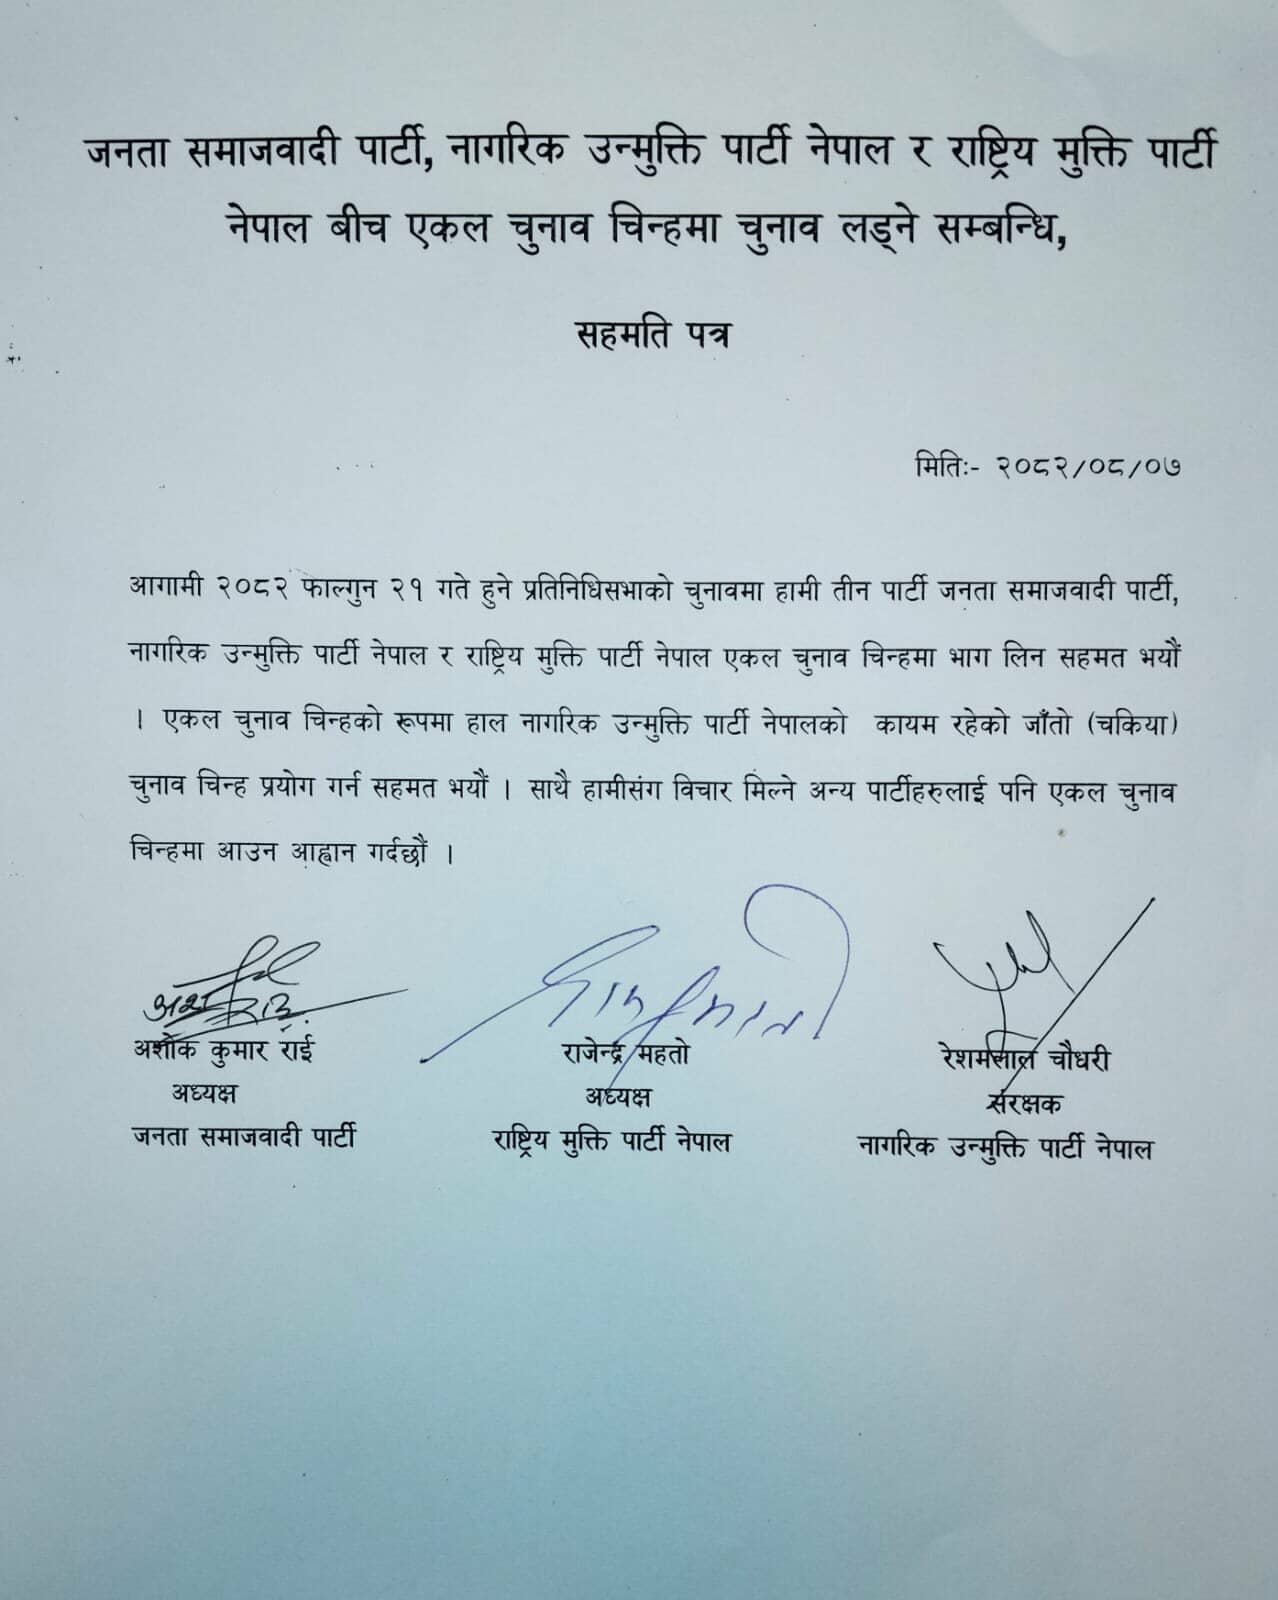 जनता समाजवादी पार्टी, नागरिक उन्मुक्ति पार्टी नेपाल र राष्ट्रिय मुक्ति पार्टी
नेपाल बीच एकल चुनाव चिन्हमा चुनाव लड्ने सम्बन्धि,
सहमति पत्र
मितिः- २०८२/०८/०७
आगामी २०८२ फाल्गुन २१ गते हुने प्रतिनिधिसभाको चुनावमा हामी तीन पार्टी जनता समाजवादी पार्टी,
नागरिक उन्मुक्ति पार्टी नेपाल र राष्ट्रिय मुक्ति पार्टी नेपाल एकल चुनाव चिन्हमा भाग लिन सहमत भयौं
। एकल चुनाव चिन्हको रूपमा हाल नागरिक उन्मुक्ति पार्टी नेपालको कायम रहेको जाँतो (चकिया)
चुनाव चिन्ह प्रयोग गर्न सहमत भयौं । साथै हामीसंग विचार मिल्ने अन्य पार्टीहरुलाई पनि एकल चुनाव
चिन्हमा आउन आह्वान गर्दछौं ।
अशोक कुमार राई राजेन्द्र महतो रेशमलाल चौधरी
अध्यक्ष अध्यक्ष संरक्षक
जनता समाजवादी पार्टी राष्ट्रिय मुक्ति पार्टी नेपाल नागरिक उन्मुक्ति पार्टी नेपाल